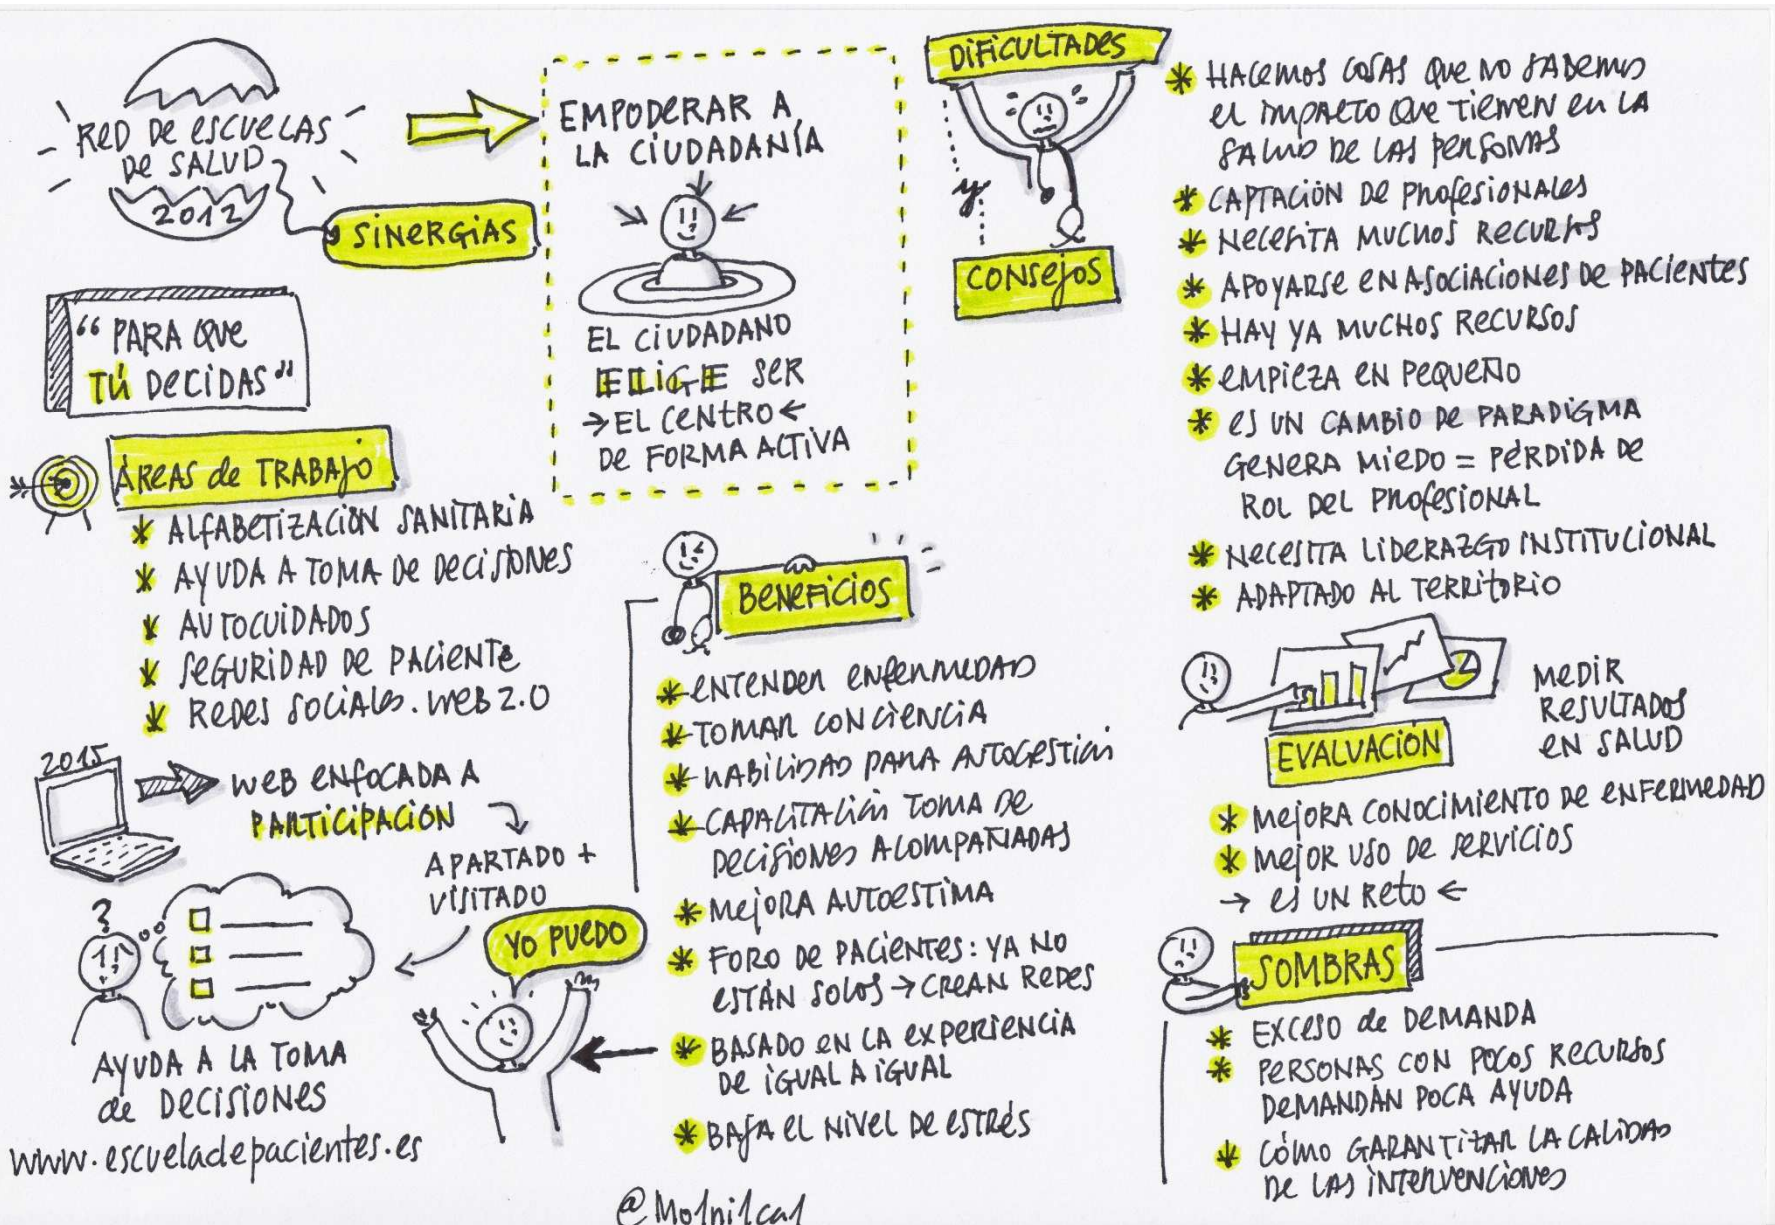 RED DE ESCUELAS
DE SALUD
2012
SINERGIAS
"PARA QUE
TÚ DECIDAS"
EMPODERAR A
LA CIUDADANÍA
EL CIUDADANO
ELIGE SER
→ EL CENTRO ←
DE FORMA ACTIVA
ÁREAS de TRABAJO
* ALFABETIZACIÓN SANITARIA
* AYUDA A TOMA DE DECISIONES
* AUTOCUIDADOS
* SEGURIDAD DE PACIENTE
* REDES SOCIALES. WEB 2.0
2015
WEB ENFOCADA A
PARTICIPACIÓN
APARTADO +
VISITADO
?
AYUDA A LA TOMA
de DECISIONES
www.escueladepacientes.es
YO PUEDO
BENEFICIOS
* ENTENDER ENFERMEDAD
* TOMAR CONCIENCIA
* HABILIDAD PARA AUTOGESTIÓN
* CAPACITACIÓN TOMA DE
DECISIONES ACOMPAÑADAS
* MEJORA AUTOESTIMA
* FORO DE PACIENTES: YA NO
ESTÁN SOLOS → CREAN REDES
* BASADO EN LA EXPERIENCIA
DE IGUAL A IGUAL
* BAJA EL NIVEL DE ESTRÉS
DIFICULTADES
y
CONSEJOS
* HACEMOS COSAS QUE NO SABEMOS
EL IMPACTO QUE TIENEN EN LA
SALUD DE LAS PERSONAS
* CAPTACIÓN DE PROFESIONALES
* NECESITA MUCHOS RECURSOS
* APOYARSE EN ASOCIACIONES DE PACIENTES
* HAY YA MUCHOS RECURSOS
* EMPIEZA EN PEQUEÑO
* ES UN CAMBIO DE PARADIGMA
GENERA MIEDO = PÉRDIDA DE
ROL DEL PROFESIONAL
* NECESITA LIDERAZGO INSTITUCIONAL
* ADAPTADO AL TERRITORIO
MEDIR
RESULTADOS
EN SALUD
EVALUACIÓN
* MEJORA CONOCIMIENTO DE ENFERMEDAD
* MEJOR USO DE SERVICIOS
→ ES UN RETO ←
SOMBRAS
* EXCESO de DEMANDA
* PERSONAS CON POCOS RECURSOS
DEMANDAN POCA AYUDA
* CÓMO GARANTIZAR LA CALIDAD
DE LAS INTERVENCIONES